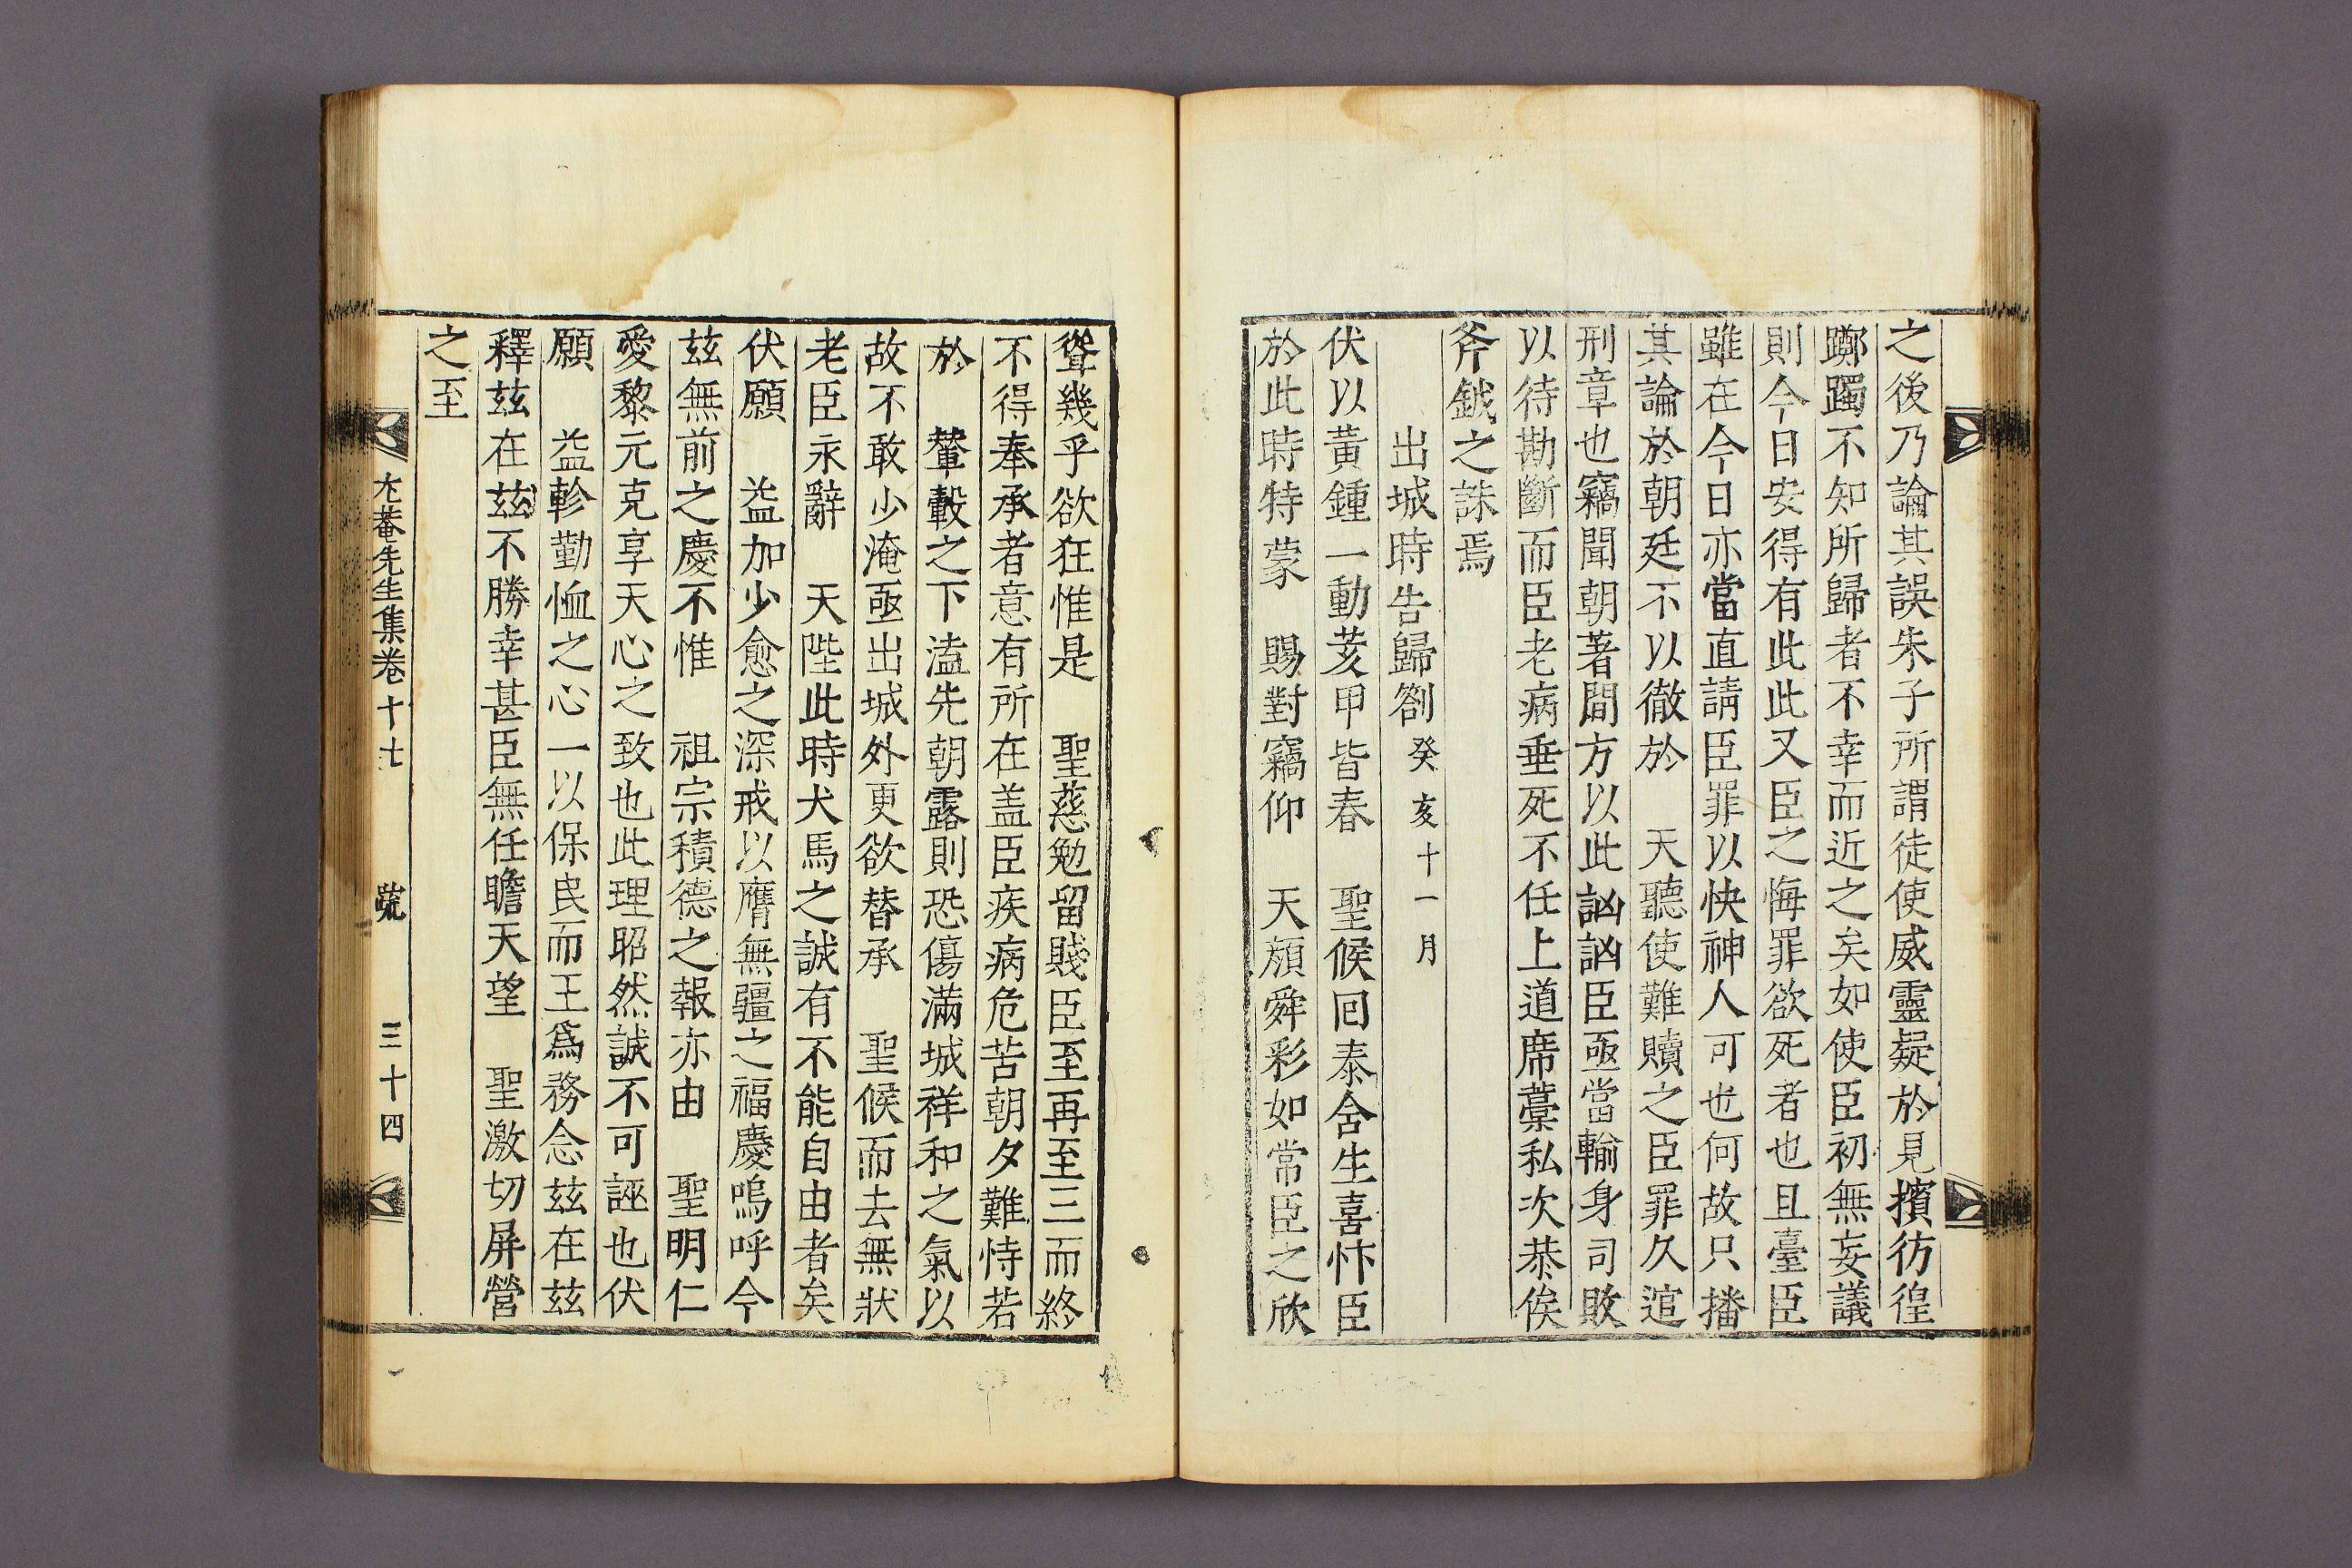 之後乃論其誤朱子所謂徒使威靈疑於見擯彷徨
躑躅不知所歸者不幸而近之矣如使臣初無妄議
則今日安得有此此又臣之悔罪欲死者也且臺臣
雖在今日亦當直請臣罪以快神人可也何故只播
其論於朝廷不以徹於 天聽使難贖之臣罪久逭
刑章也竊聞朝著間方以此訩訩臣亟當輸身司敗
以待勘斷而臣老病垂死不任上道席藁私次恭俟
斧鉞之誅焉
出城時告歸劄 癸亥十一月
伏以黃鍾一動荄甲皆春 聖候回泰含生喜忭臣
於此時特蒙 賜對竊仰 天顏舜彩如常臣之欣
聳幾乎欲狂惟是 聖慈勉留賤臣至再至三而終
不得奉承者意有所在盖臣疾病危苦朝夕難恃若
於 輦轂之下溘先朝露則恐傷滿城祥和之氣以
故不敢少淹亟出城外更欲替承 聖候而去無狀
老臣永辭 天陛此時犬馬之誠有不能自由者矣
伏願 益加少愈之深戒以膺無疆之福慶嗚呼今
玆無前之慶不惟 祖宗積德之報亦由 聖明仁
愛黎元克享天心之致也此理昭然誠不可誣也伏
願 益軫勤恤之心一以保民而王爲務念玆在玆
釋玆在玆不勝幸甚臣無任瞻天望 聖激切屏營
之至
尤菴先生集卷十七 疏 三十四